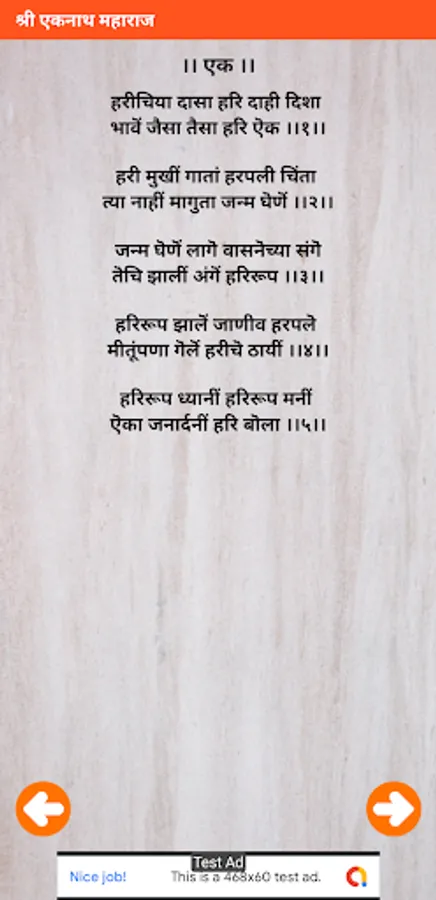 श्री एकनाथ महाराज
।। एक ।।
हरीचिया दासा हरि दाही दिशा
भावॆं जैसा तैसा हरि ऎक ।।१।।
हरी मुखीं गातां हरपली चिंता
त्या नाहीं मागुता जन्म घॆणॆं ।।२।।
जन्म घॆणॆं लागॆ वासनॆच्या संगॆ
तॆचि झालीं अंगॆं हरिरूप ।।३।।
हरिरूप झालॆं जाणीव हरपलॆ
मीतूंपणा गॆलॆं हरीचॆ ठायीं ।।४।।
हरिरूप ध्यानीं हरिरूप मनीं
ऎका जनार्दनीं हरि बॊला ।।५।।
Test Ad
Nice job!
This is a 468x60 test ad.